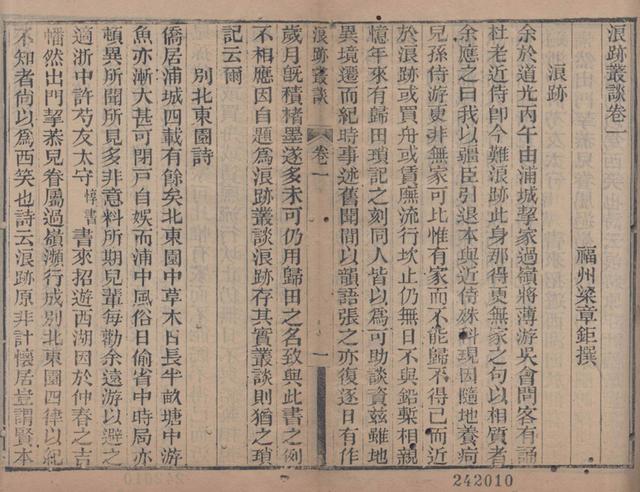 浪跡叢談卷一
福州梁章鉅撰
浪跡
余於道光丙午由浦城挈家過嶺將薄游吳會問客有誦
杜老近侍卽今難浪跡此身那得更無家之句以相質者
余應之曰我以疆臣引退本與近侍殊科現因隨地養疴
兒孫侍游更非無家可比惟有家而不能歸不得已而近
於浪跡或買舟或賃廡流行坎止仍無日不與鉛槧相親
憶年來有歸田瑣記之刻同人皆以爲可助談資玆雖地
異境遷而紀時事述舊聞間以韻語張之亦復逐日有作
浪跡叢談
卷一
一
歲月旣積楮墨遂多未可仍用歸田之名致與此書之例
不相應因自題爲浪跡叢談浪跡存其實叢談則猶之瑣
記云爾
別北東園詩
僑居浦城四載有餘矣北東園中草木日長半畝塘中游
魚亦漸大甚可閉戸自娱而浦中風俗日偷省中時局亦
頓異所聞所見多非意料所期兒輩每勸余遠游以避之
適浙中許芍友太守惇書書來招遊西湖因於仲春之吉
幡然出門挈慕兒眷屬過嶺瀕行成別北東園四律以紀
不知者尚以爲西笑也詩云浪跡原非計懷居豈謂賢本
242010